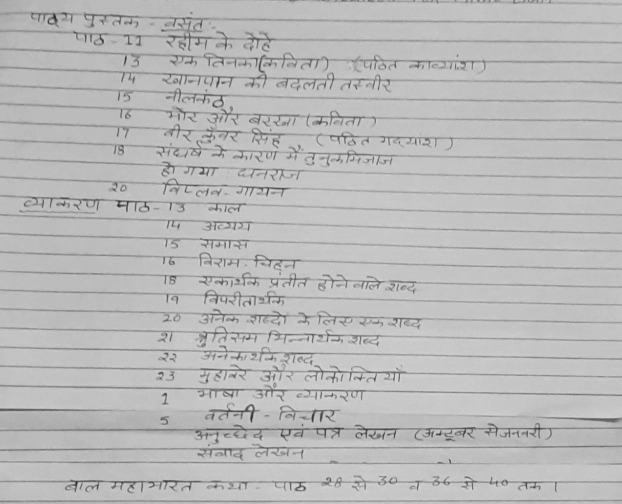 पाठ्य पुस्तक - वसंत-
पाठ - 11 रहीम के दोहे
13 एक तिनका (कविता) (पठित काव्यांश)
14 खानपान की बदलती तस्वीर
15 नीलकंठ
16 भोर और बरखा (कविता)
17 वीर कुँवर सिंह (पठित गद्यांश)
18 संघर्ष के कारण मैं तुनुकमिजाज
हो गया : धनराज
20 विप्लव - गायन
व्याकरण पाठ - 13 काल
14 अव्यय
15 समास
16 विराम - चिह्न
18 एकार्थक प्रतीत होने वाले शब्द
19 विपरीतार्थक
20 अनेक शब्दों के लिए एक शब्द
21 श्रुतिसम भिन्नार्थक शब्द
22 अनेकार्थक शब्द
23 मुहावरे और लोकोक्तियाँ
1 भाषा और व्याकरण
5 वर्तनी - विचार
अनुच्छेद एवं पत्र लेखन (अक्टूबर से जनवरी)
संवाद लेखन
बाल महाभारत कथा - पाठ 28 से 30 व 36 से 40 तक ।